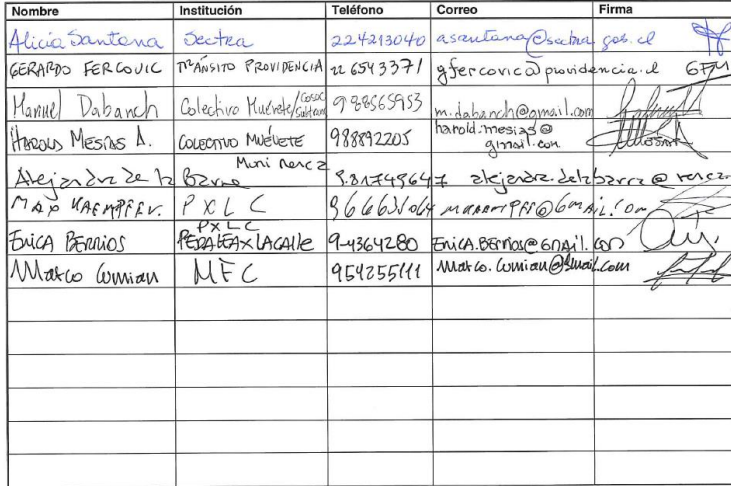 Nombre Institución Teléfono Correo Firma
Alicia Santana Sectra 224213040 asantana@sectra.gob.cl
GERARDO FERCOVIC TRÁNSITO PROVIDENCIA 22 6543371 gfercovic@providencia.cl GFM
Manuel Dabanch Colectivo Muévete/Cosoc Subtrans 988565953 m.dabanch@gmail.com
HAROLD MESÍAS A. COLECTIVO MUÉVETE 988892205 harold.mesias@
gmail.com
Muni renca
Alejandra de la Barra 9.81749647 alejandra.delabarra@renca
MAX KAEMPFER. P X L C
PXLC
ERICA BERRIOS PEDALEAxLACALLE 9-4364280 Erica.Berrios@Gmail.com
Marco Cumian MFC 954255111 Marco.Cumian@Gmail.com